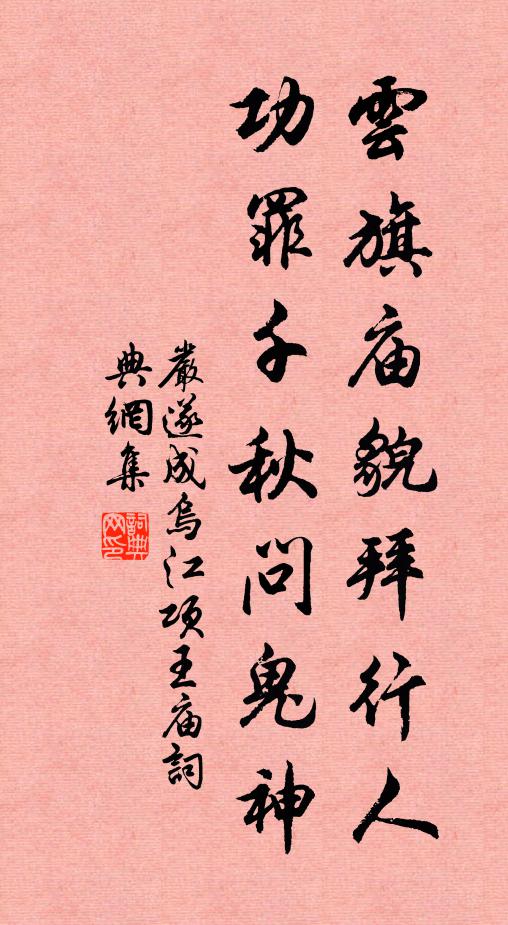 雲旗庙貌拜行人
功罪千秋問鬼神
嚴遂成烏江項王庙詞
典網集
詞典網印